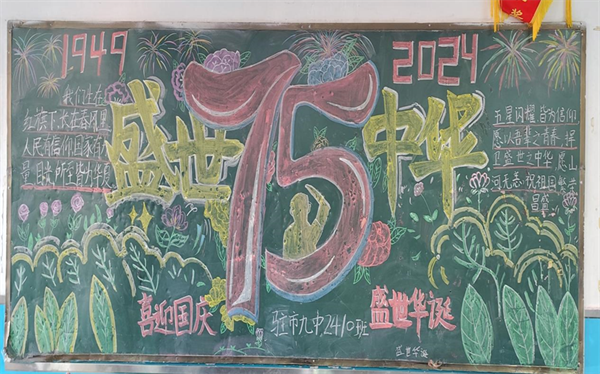 1949
2024
盛世
75
中华
我们生在
红旗下,长在春风里
人民有信仰国家有力
量 目光所至皆为华夏
五星闪耀 皆为信仰
愿以吾辈之青春 捍
卫盛世之中华 愿山
河无恙 祝祖国繁荣
昌盛
喜迎国庆
驻市九中2410班
盛世华诞